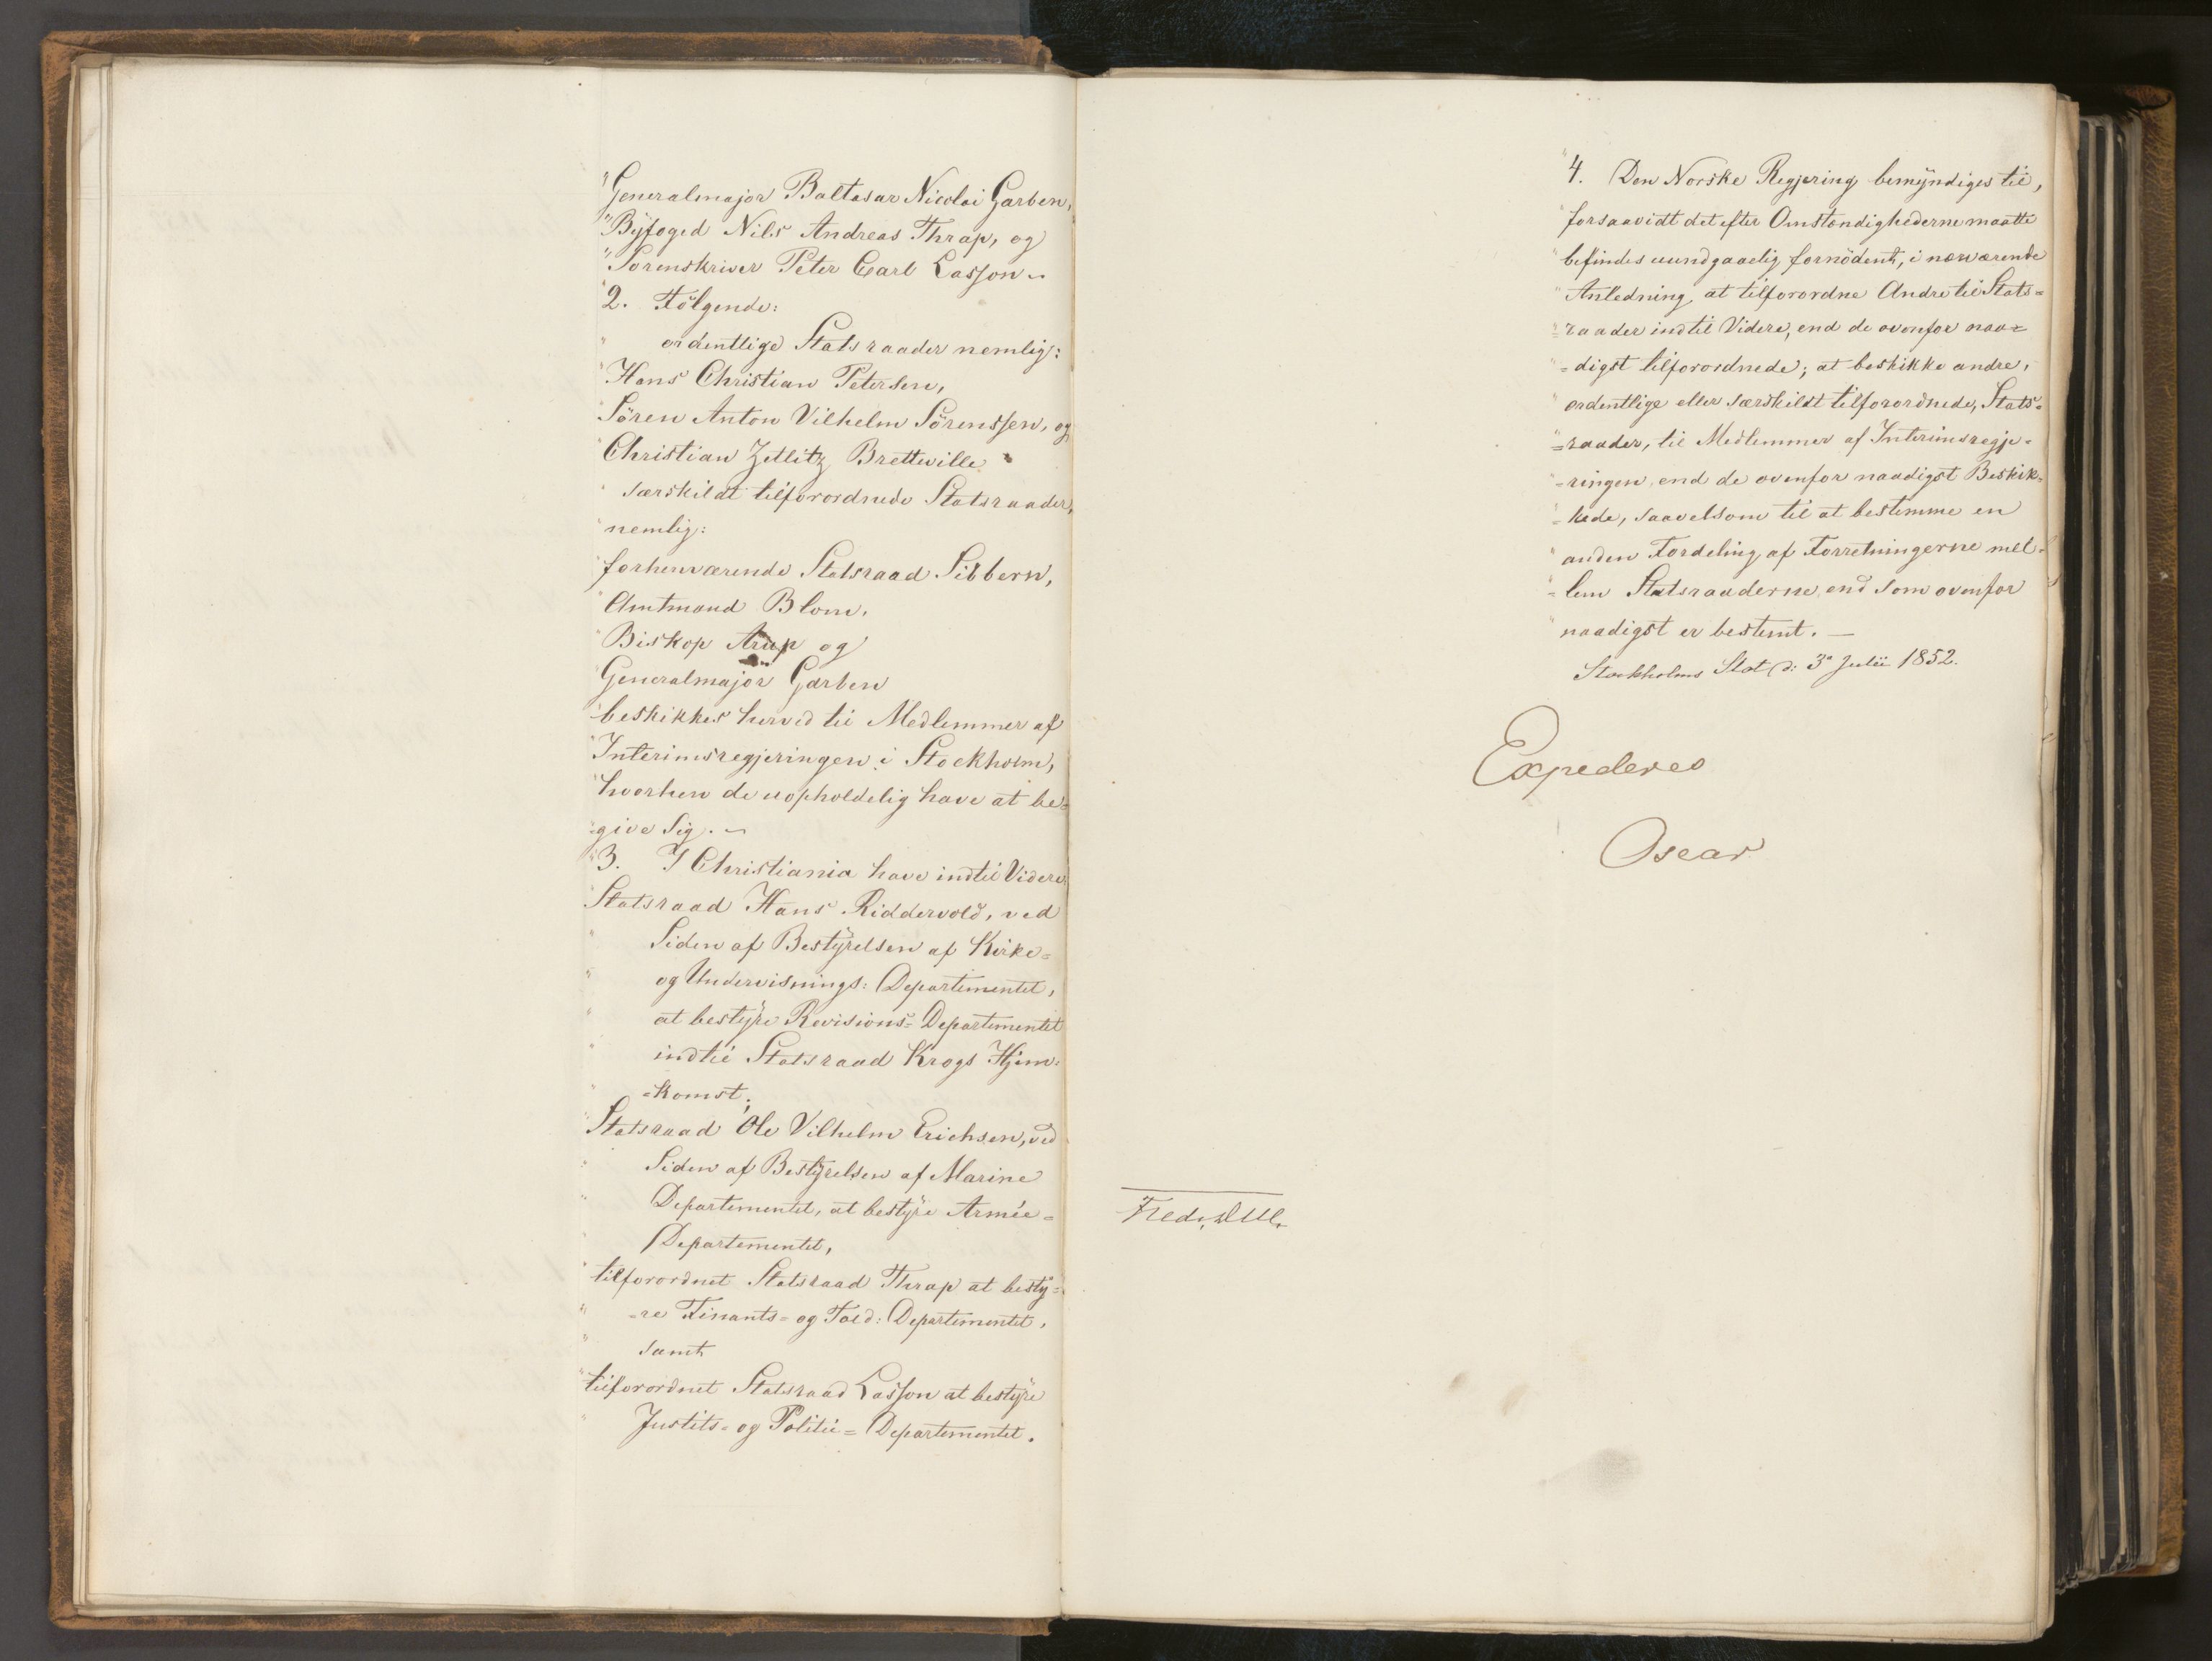 "Generalmajor Baltasar Nicolai Garben,
"Byfoged Nils Andreas Thrap, og
"Sorenskriver Peter Carl Lasson. -
"2. Følgende:
" ordentlige Statsraader nemlig:
"Hans Christian Petersen,
"Sören Anton Vilhelm Sörenssen, og
"Christian Zetlitz Bretteville
" særskildt tilforordnede Statsraader,
"nemlig:
"forhenværende Statsraad Sibbern,
"Amtmand Blom,
"Biskop Arup og
"Generalmajor Garben
"beskikkes herved til Medlemmer af
"Interimsregjeringen i Stockholm,
"hvorhen de uopholdelig have at be=
"give Sig. -
"3. I Christiania have indtil Videre
"Statsraad Hans Riddervold, ved
" Siden af Bestyrelsen af Kirke=
" og Undervisnings: Departementet,
" at bestyre Revisions= Departementet
" indtil Statsraad Krogs Hjem=
" =komst;
"Statsraad Ole Vilhelm Erichsen, ved
" Siden af Bestyrelsen af Marine
" Departementet, at bestyre Armée=
" Departementet,
"tilforordnet Statsraad Thrap at besty=
" =re Finants= og Told: Departementet,
" samt
"tilforordnet Statsraad Lasson at bestyre
" Justits= og Politie= Departementet.
"4. Den Norske Regjering bemyndiges til,
"forsaavidt det efter Omstændighederne maatte
"befindes uundgaaelig fornödent, i nærværende
"Anledning, at tilforordne Andre til Stats=
"=raader indtil Videre, end de ovenfor naa=
"=digst tilforordnede; at beskikke andre,
"ordentlige eller særskildt tilforordnede, Stats=
"=raader, til Medlemmer af Interimsregje=
"=ringen, end de ovenfor naadigst Beskik=
"=kede, saavelsom til at bestemme en
"anden Fordeling af Forretningerne mel=
"=lem Statsraaderne, end som ovenfor
"naadigst er bestemt. —
Stockholms Slot d: 3e Julii 1852.
Expederes
Oscar